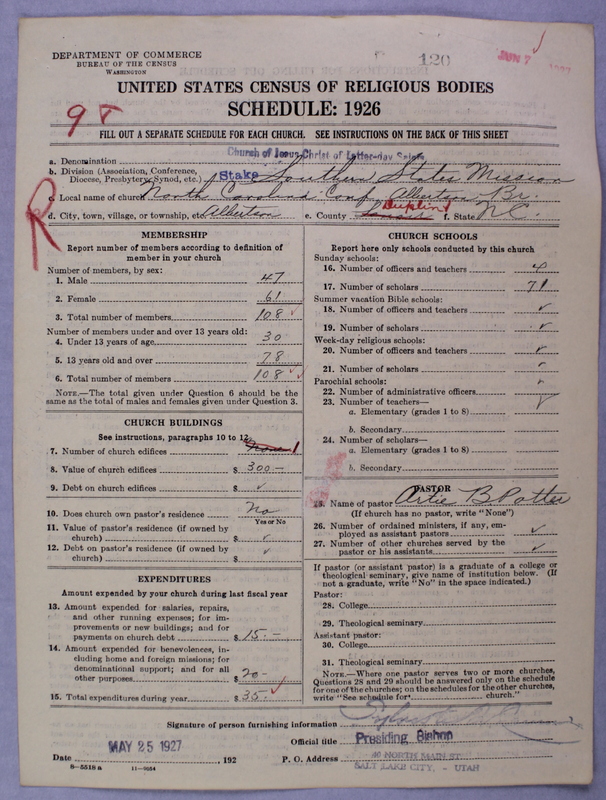 DEPARTMENT OF COMMERCE
BUREAU OF THE CENSUS
WASHINGTON
120
JUN 7
UNITED STATES CENSUS OF RELIGIOUS BODIES
SCHEDULE: 1926
FILL OUT A SEPARATE SCHEDULE FOR EACH CHURCH. SEE INSTRUCTIONS ON THE BACK OF THIS SHEET
a. Denomination Church of Jesus Christ of Latter-day Saints
b. Division (Association, Conference, Diocese, Presbytery, Synod, etc.) Stake Southern States Mission
c. Local name of church North Carolina Conf. Albertson Br.
d. City, town, village, or township, etc. Albertson e. County Duplin f. State N.C.
MEMBERSHIP
Report number of members according to definition of member in your church
Number of members, by sex:
1. Male 47
2. Female 61
3. Total number of members 108
Number of members under and over 13 years old:
4. Under 13 years of age 30
5. 13 years old and over 78
6. Total number of members 108
NOTE.—The total given under Question 6 should be the same as the total of males and females given under Question 3.
CHURCH BUILDINGS
See instructions, paragraphs 10 to 12
7. Number of church edifices 1
8. Value of church edifices $ 300—
9. Debt on church edifices $ ✓
10. Does church own pastor's residence No
Yes or No
11. Value of pastor's residence (if owned by church) $ ✓
12. Debt on pastor's residence (if owned by church) $ ✓
EXPENDITURES
Amount expended by your church during last fiscal year
13. Amount expended for salaries, repairs, and other running expenses; for improvements or new buildings; and for payments on church debt $ 15.—
14. Amount expended for benevolences, including home and foreign missions; for denominational support; and for all other purposes $ 20—
15. Total expenditures during year $ 35.—
CHURCH SCHOOLS
Report here only schools conducted by this church
Sunday schools:
16. Number of officers and teachers
17. Number of scholars 71
Summer vacation Bible schools:
18. Number of officers and teachers ✓
19. Number of scholars ✓
Week-day religious schools:
20. Number of officers and teachers ✓
21. Number of scholars ✓
Parochial schools:
22. Number of administrative officers ✓
23. Number of teachers—
a. Elementary (grades 1 to 8)
b. Secondary
24. Number of scholars—
a. Elementary (grades 1 to 8)
b. Secondary
PASTOR
25. Name of pastor Artie B Potter
(If church has no pastor, write "None")
26. Number of ordained ministers, if any, employed as assistant pastors ✓
27. Number of other churches served by the pastor or his assistants ✓
If pastor (or assistant pastor) is a graduate of a college or theological seminary, give name of institution below. (If not a graduate, write "No" in the space indicated.)
Pastor:
28. College
29. Theological seminary
Assistant pastor:
30. College
31. Theological seminary
NOTE.—Where one pastor serves two or more churches, Questions 28 and 29 should be answered only on the schedule for one of the churches; on the schedules for the other churches, write "See schedule for church."
Signature of person furnishing information
Official title Presiding Bishop
Date MAY 25 1927 192
P. O. Address 40 NORTH MAIN ST
SALT LAKE CITY, - UTAH
8—5518 a 11—9054